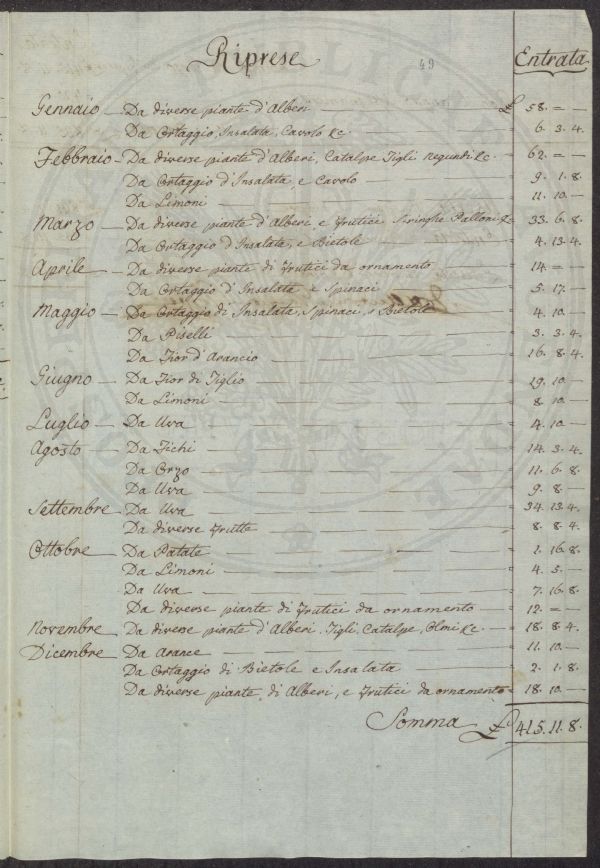 Riprese 49 Entrata
Gennaio — Da diverse piante d'Alberi — £ 58. = —
Da Ortaggio, Insalata, Cavolo &c. — 6. 3. 4.
Febbraio — Da diverse piante d'Alberi, Catalpe Tigli negundi &c. — 62. = —
Da Ortaggio d'Insalata, e Cavolo — 9. 1. 8.
Da Limoni — 11. 10. —
Marzo — Da diverse piante d'Alberi e Frutici Siringhe Palloni &c — 33. 6. 8.
Da Ortaggio d'Insalata, e Bietole — 4. 13. 4.
Aprile — Da diverse piante di Frutici da ornamento — 14. = —
Da Ortaggio d'Insalata e Spinaci — 5. 17. —
Maggio — Da Ortaggio di Insalata, Spinaci, e Bietole — 4. 10. —
Da Piselli — 3. 3. 4.
Da Fior d'Arancio — 16. 8. 4.
Giugno — Da Fior di Tiglio — 19. 10. —
Da Limoni — 8. 10. —
Luglio — Da Uva — 4. 10. —
Agosto — Da Fichi — 14. 3. 4.
Da Orzo — 11. 6. 8.
Da Uva — 9. 8. —
Settembre — Da Uva — 34. 13. 4.
Da diverse Frutte — 8. 8. 4.
Ottobre — Da Patate — 1. 16. 8.
Da Limoni — 4. 5. —
Da Uva — 7. 16. 8.
Da diverse piante di Frutici da ornamento — 12. = —
Novembre — Da diverse piante d'Alberi, Tigli, Catalpe, Olmi &c. — 18. 8. 4.
Dicembre — Da Arance — 11. 10. —
Da Ortaggio di Bietole e Insalata — 2. 1. 8.
Da diverse piante di Alberi, e Frutici da ornamento 18. 10. —
Somma £ 415. 11. 8.